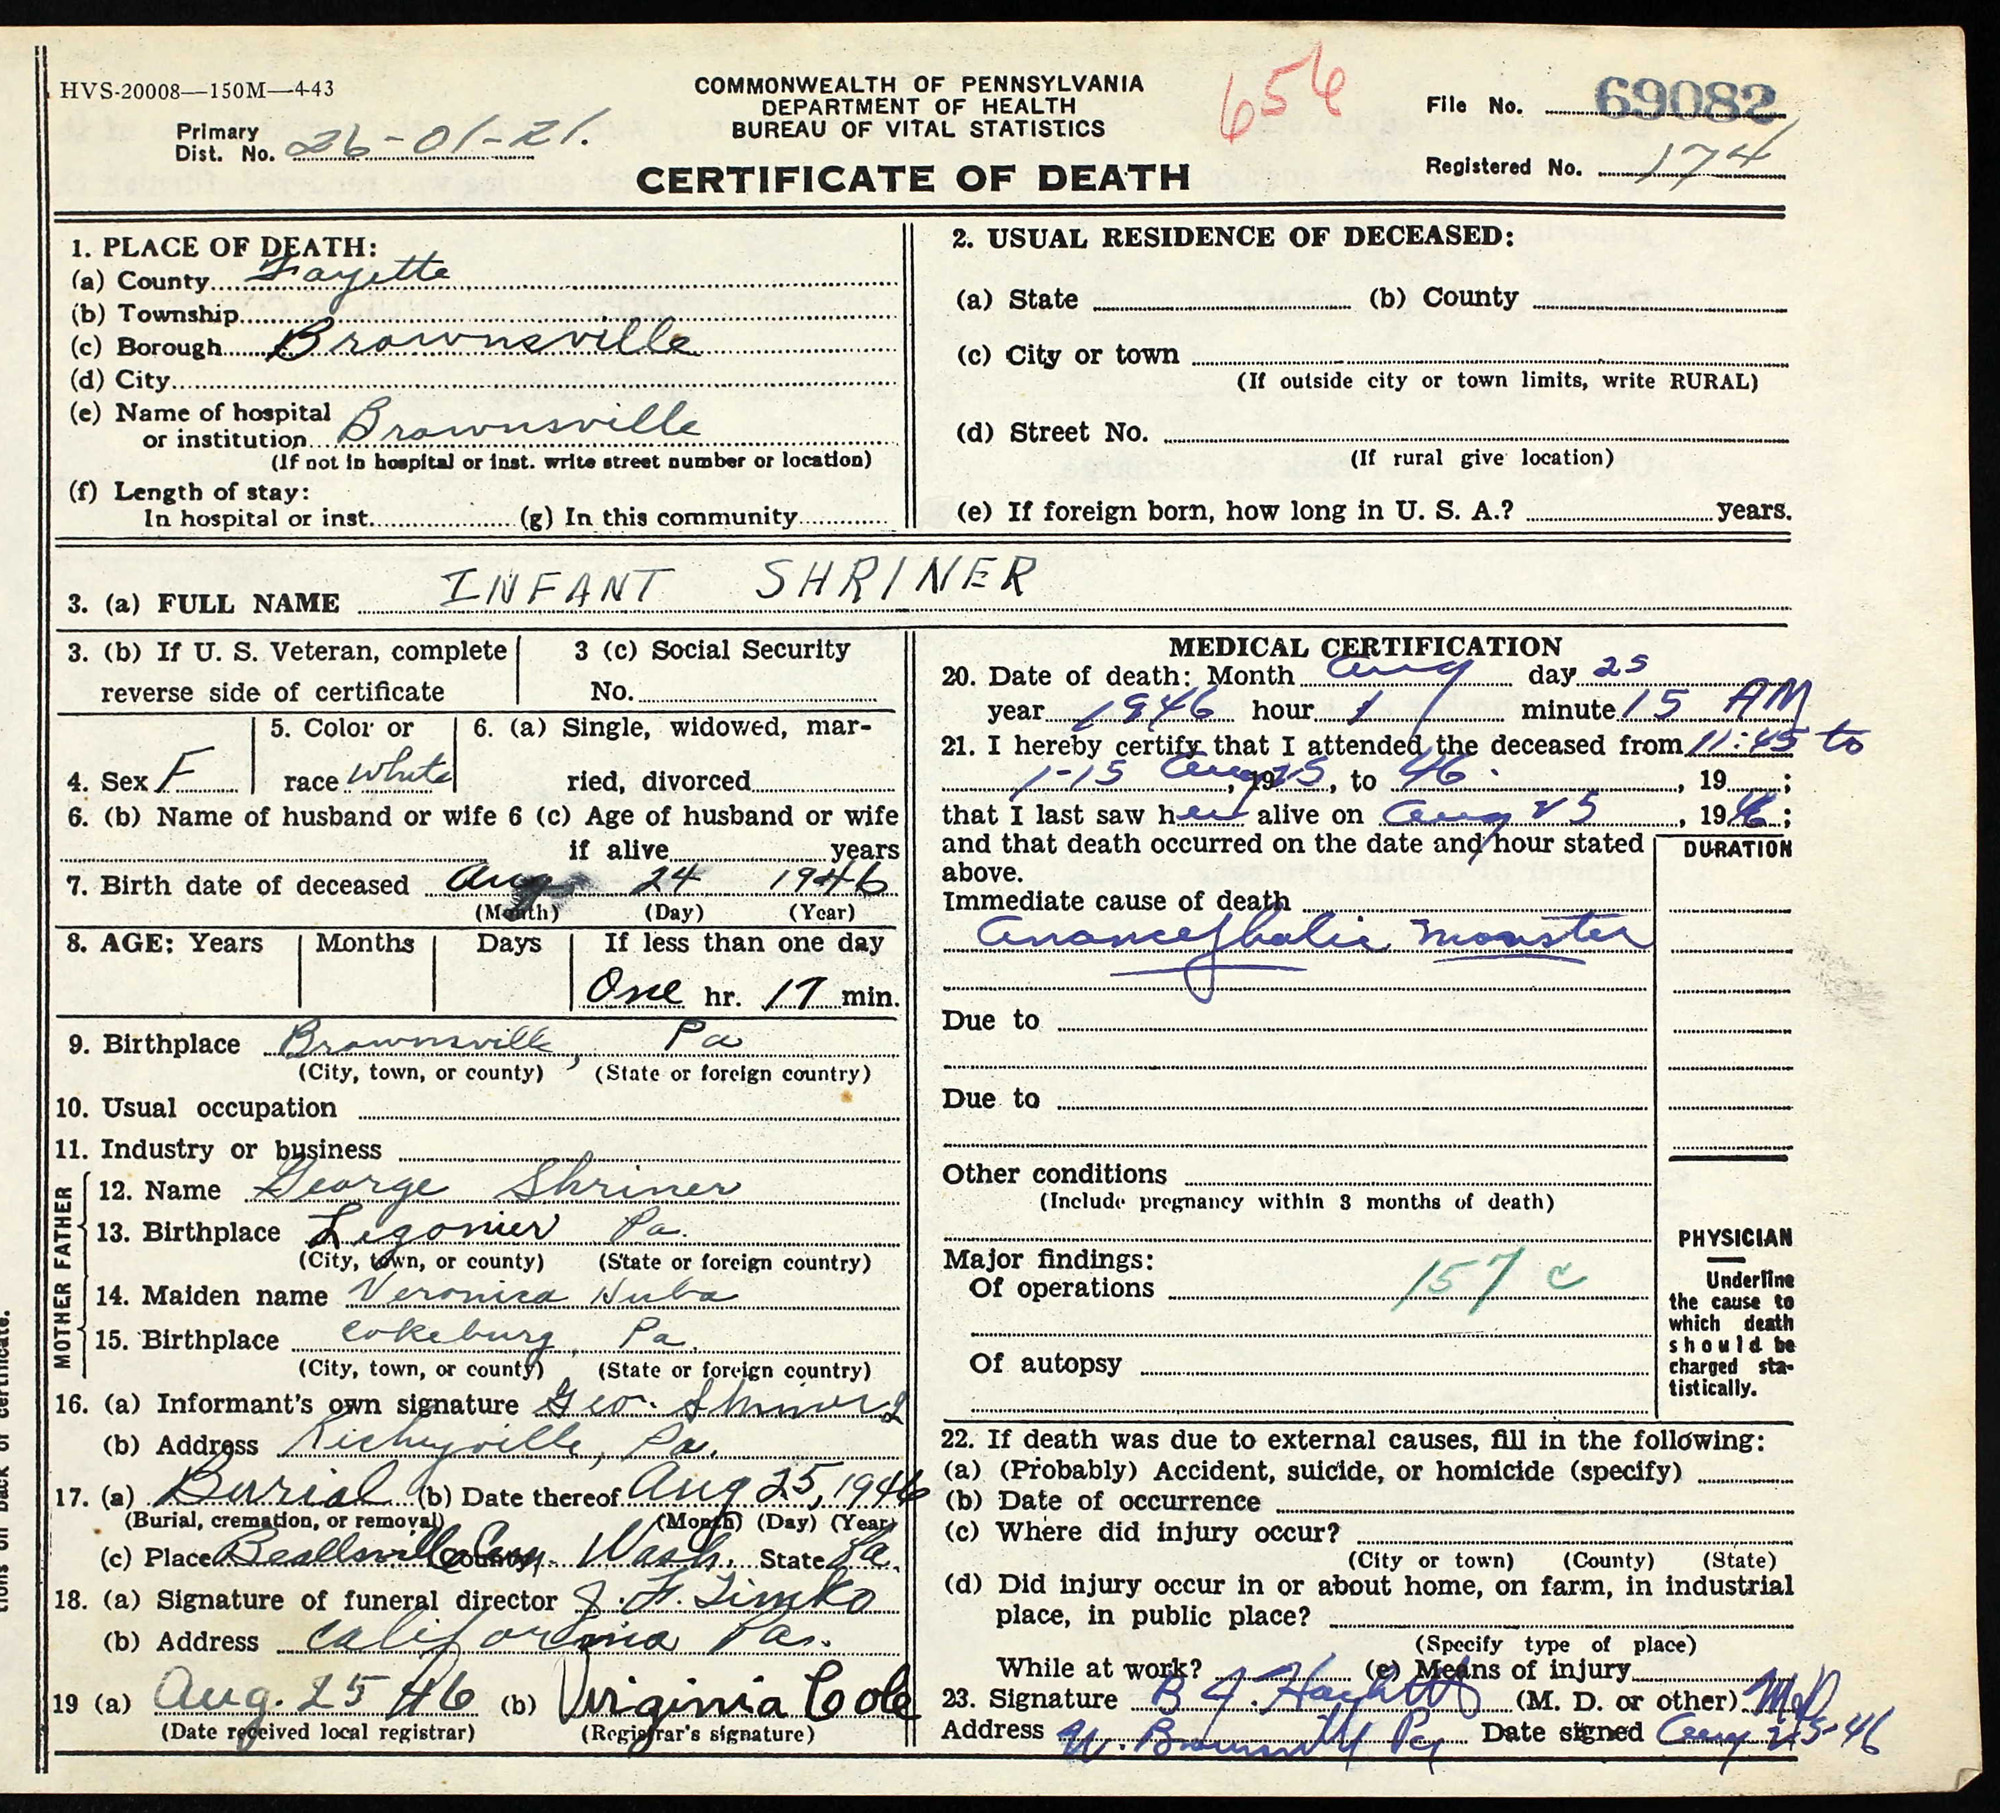 HVS-20008—150M—4-43
COMMONWEALTH OF PENNSYLVANIA
DEPARTMENT OF HEALTH
BUREAU OF VITAL STATISTICS
656
File No. 69082
Primary
Dist. No. 26-01-21.
Registered No. 174
CERTIFICATE OF DEATH
1. PLACE OF DEATH:
(a) County Fayette
(b) Township
(c) Borough Brownsville
(d) City
(e) Name of hospital
or institution Brownsville
(If not in hospital or inst. write street number or location)
(f) Length of stay:
In hospital or inst. (g) In this community
2. USUAL RESIDENCE OF DECEASED:
(a) State (b) County
(c) City or town
(If outside city or town limits, write RURAL)
(d) Street No.
(If rural give location)
(e) If foreign born, how long in U. S. A.? years.
3. (a) FULL NAME INFANT SHRINER
3. (b) If U. S. Veteran, complete
reverse side of certificate
3 (c) Social Security
No.
4. Sex F
5. Color or
race White
6. (a) Single, widowed, mar-
ried, divorced
6. (b) Name of husband or wife 6 (c) Age of husband or wife
if alive years
7. Birth date of deceased Aug 24 1946
(Month) (Day) (Year)
8. AGE: Years Months Days If less than one day
One hr. 17 min.
9. Birthplace Brownsville, Pa
(City, town, or county) (State or foreign country)
10. Usual occupation
11. Industry or business
FATHER
12. Name George Shriner
13. Birthplace Legonier Pa.
(City, town, or county) (State or foreign country)
MOTHER
14. Maiden name Veronica Huba
15. Birthplace Cokeburg, Pa.
(City, town, or county) (State or foreign country)
16. (a) Informant's own signature Geo. Shriner
(b) Address Richeyville, Pa.
17. (a) Burial (b) Date thereof Aug 25, 1946
(Burial, cremation, or removal) (Month) (Day) (Year)
(c) Place Beallsville Cem County Wash. State Pa.
18. (a) Signature of funeral director J. F. Timko
(b) Address California Pa.
19 (a) Aug. 25 46 (b) Virginia Cole
(Date received local registrar) (Registrar's signature)
MEDICAL CERTIFICATION
20. Date of death: Month Aug day 25
year 1946 hour 1 minute 15 AM
21. I hereby certify that I attended the deceased from 11:45 to
1-15 Aug 25, 19, to 46, 19 ;
that I last saw her alive on Aug 25, 1946;
and that death occurred on the date and hour stated
above.
DURATION
Immediate cause of death
Anancephalic monster
Due to
Due to
Other conditions
(Include pregnancy within 3 months of death)
Major findings:
Of operations 157 c
Of autopsy
PHYSICIAN
Underline
the cause to
which death
should be
charged sta-
tistically.
22. If death was due to external causes, fill in the following:
(a) (Probably) Accident, suicide, or homicide (specify)
(b) Date of occurrence
(c) Where did injury occur?
(City or town) (County) (State)
(d) Did injury occur in or about home, on farm, in industrial
place, in public place?
(Specify type of place)
While at work? (e) Means of injury
23. Signature B J. Hackett (M. D. or other) MD
Address W. Brownsville Pa Date signed Aug 25-46